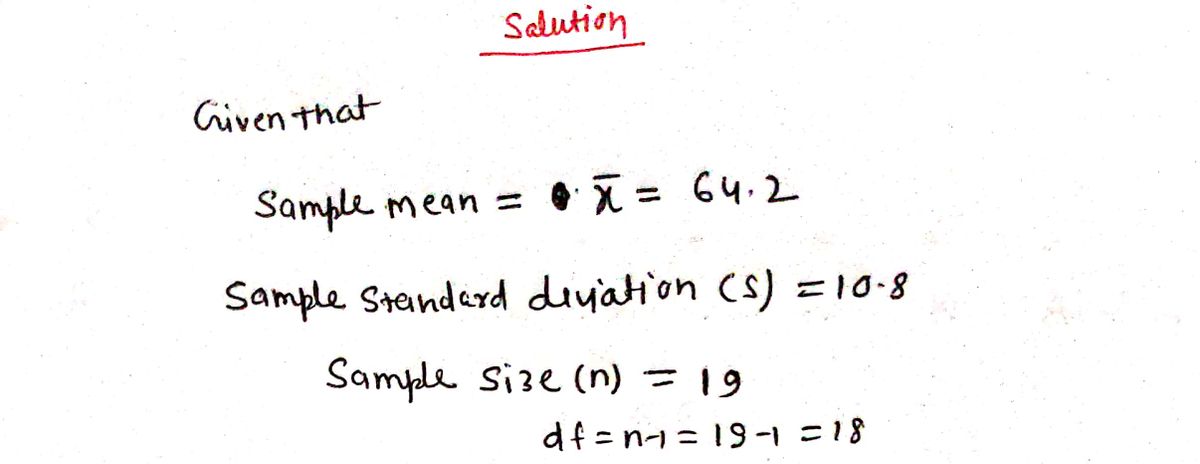 Solution
Given that
Sample mean = x̄ = 64.2
Sample Standard deviation (S) = 10.8
Sample size (n) = 19
df = n-1 = 19-1 = 18